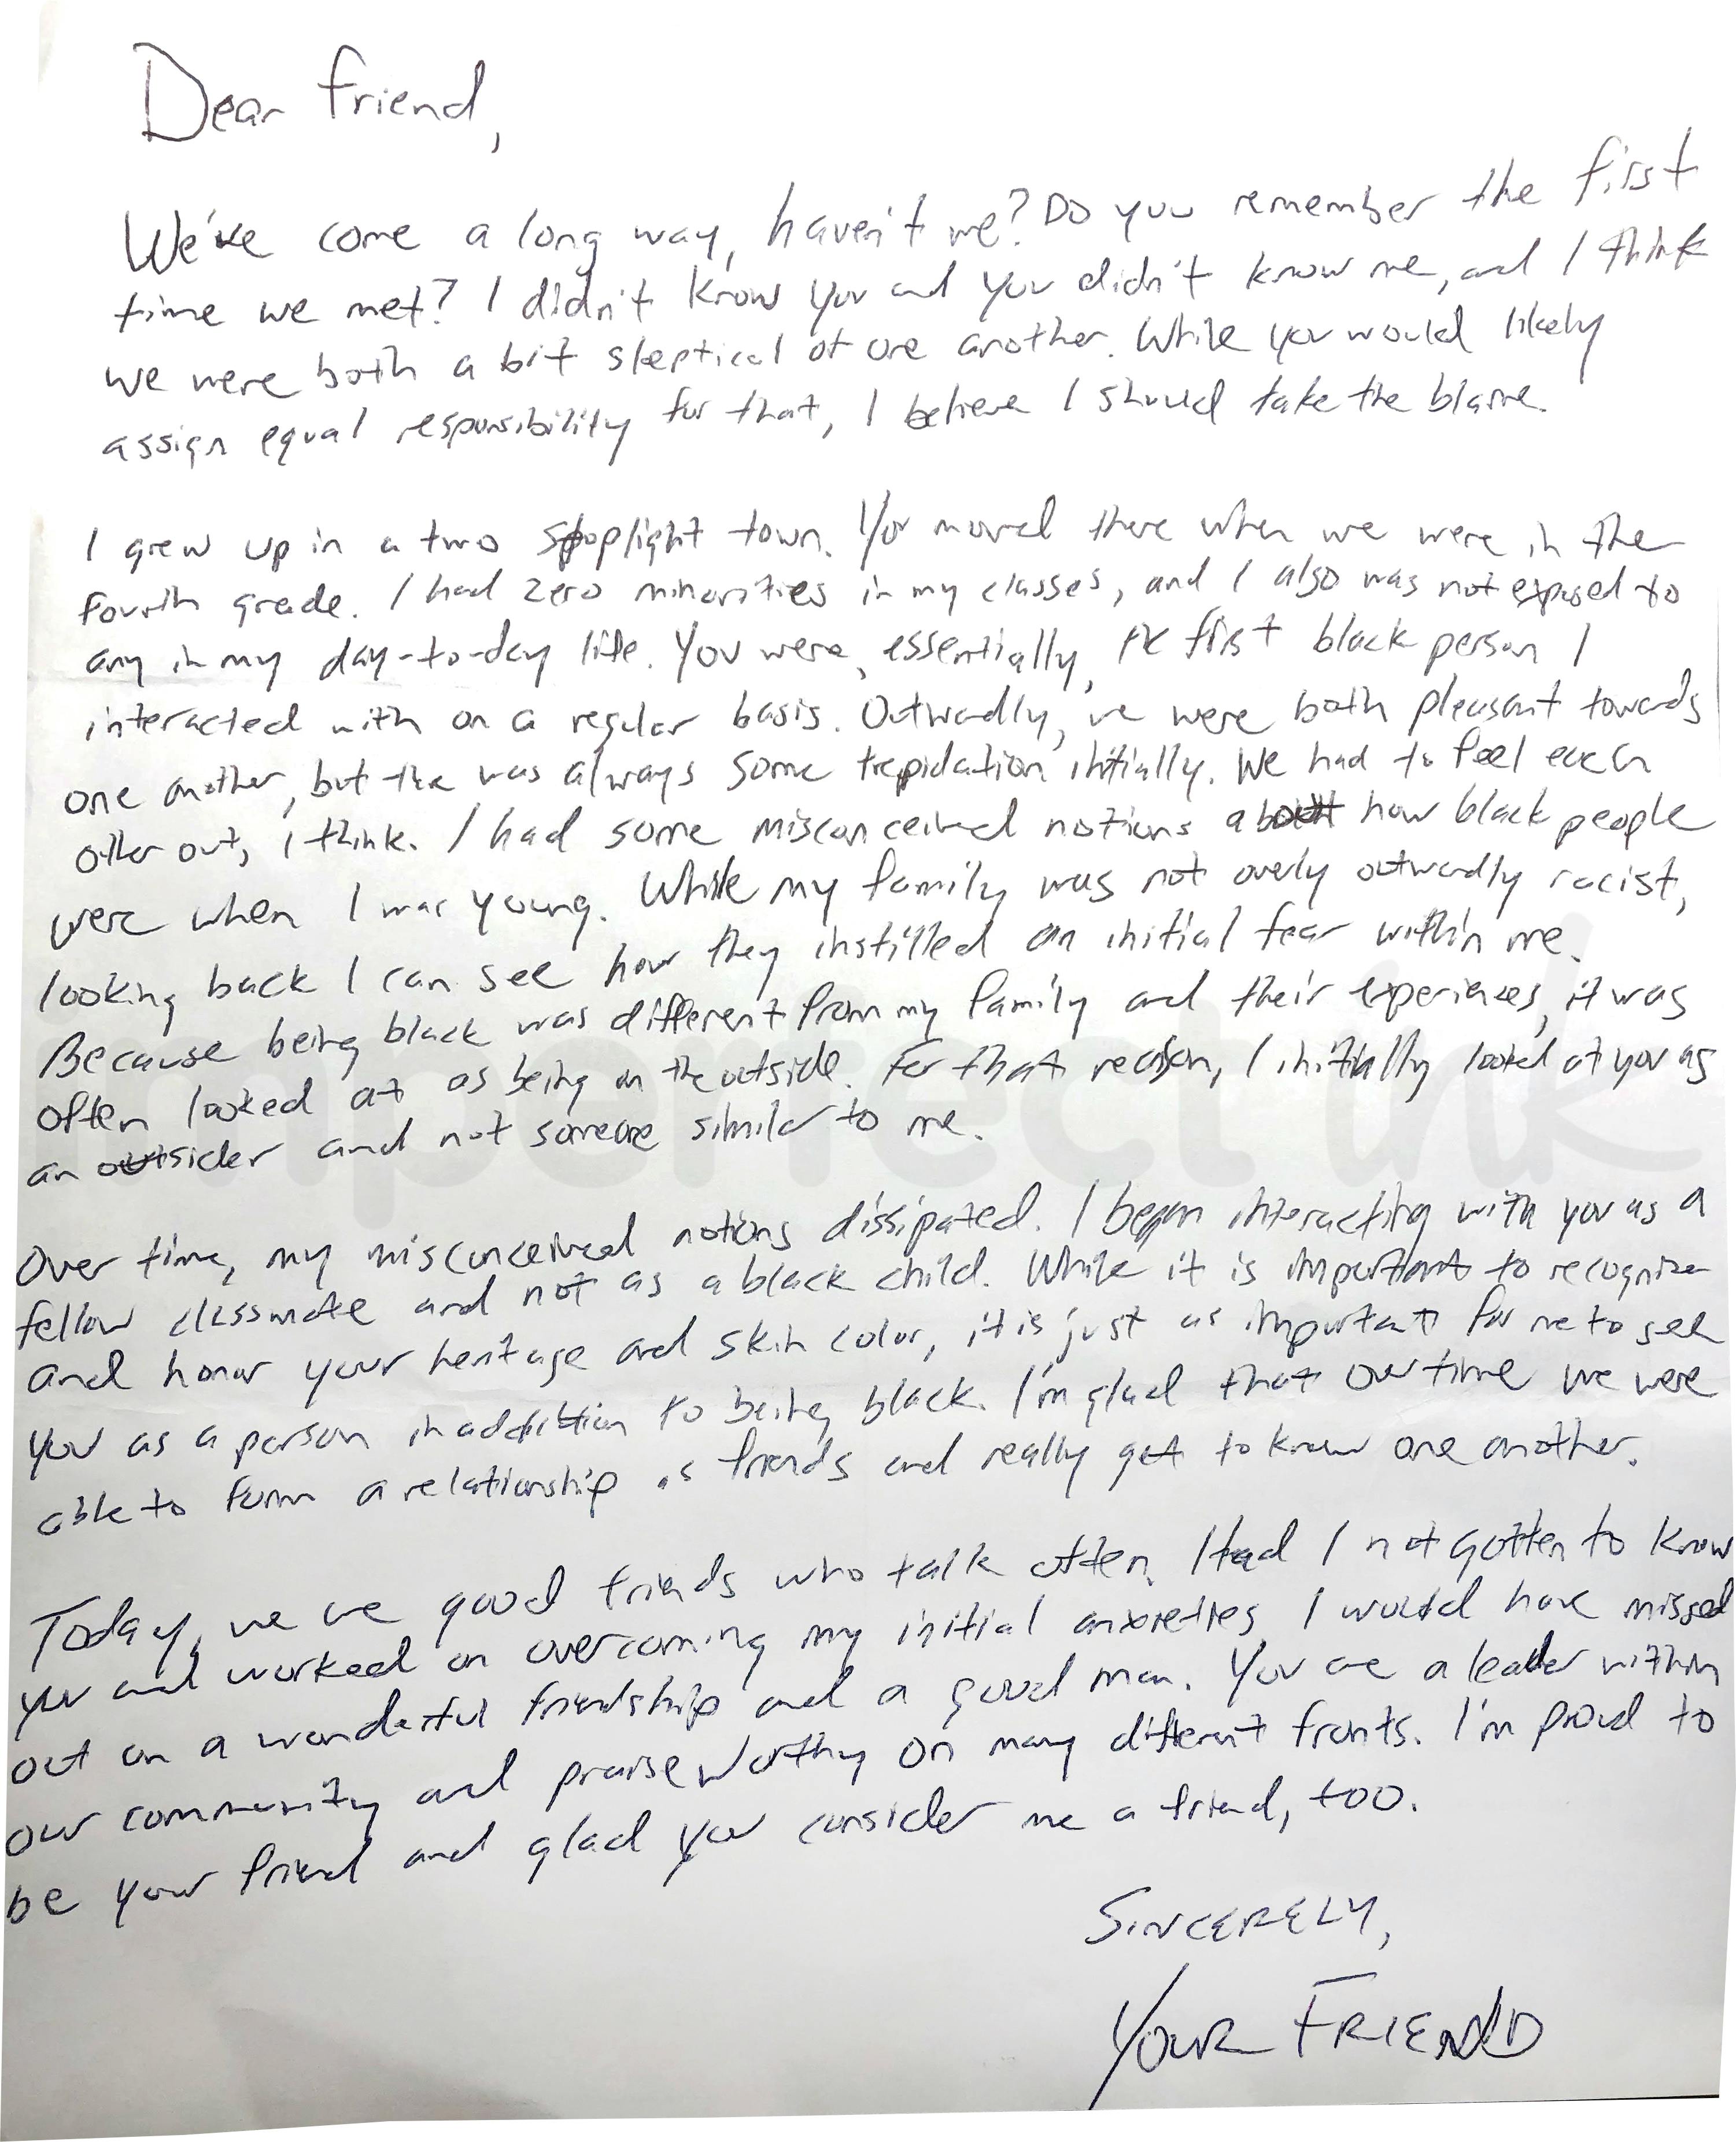 Dear friend,
We've come a long way, haven't we? Do you remember the first
time we met? I didn't know you and you didn't know me, and I think
we were both a bit skeptical of one another. While you would likely
assign equal responsibility for that, I believe I should take the blame.
I grew up in a two stoplight town. You moved there when we were in the
fourth grade. I had zero minorities in my classes, and I also was not exposed to
any in my day-to-day life. You were, essentially, the first black person I
interacted with on a regular basis. Outwardly, we were both pleasant towards
one another, but there was always some trepidation initially. We had to feel each
other out, I think. I had some misconceived notions about how black people
were when I was young. While my family was not overly outwardly racist,
looking back I can see how they instilled an initial fear within me.
Because being black was different from my family and their experiences, it was
often looked at as being on the outside. For that reason, I initially looked at you as
an outsider and not someone similar to me.
Over time, my misconceived notions dissipated. I began interacting with you as a
fellow classmate and not as a black child. While it is important to recognize
and honor your heritage and skin color, it is just as important for me to see
you as a person in addition to being black. I'm glad that over time we were
able to form a relationship as friends and really get to know one another.
Today, we are good friends who talk often. Had I not gotten to know
you and worked on overcoming my initial anxieties, I would have missed
out on a wonderful friendship and a good man. You are a leader within
our community and praiseworthy on many different fronts. I'm proud to
be your friend and glad you consider me a friend, too.
SINCERELY,
YOUR FRIEND